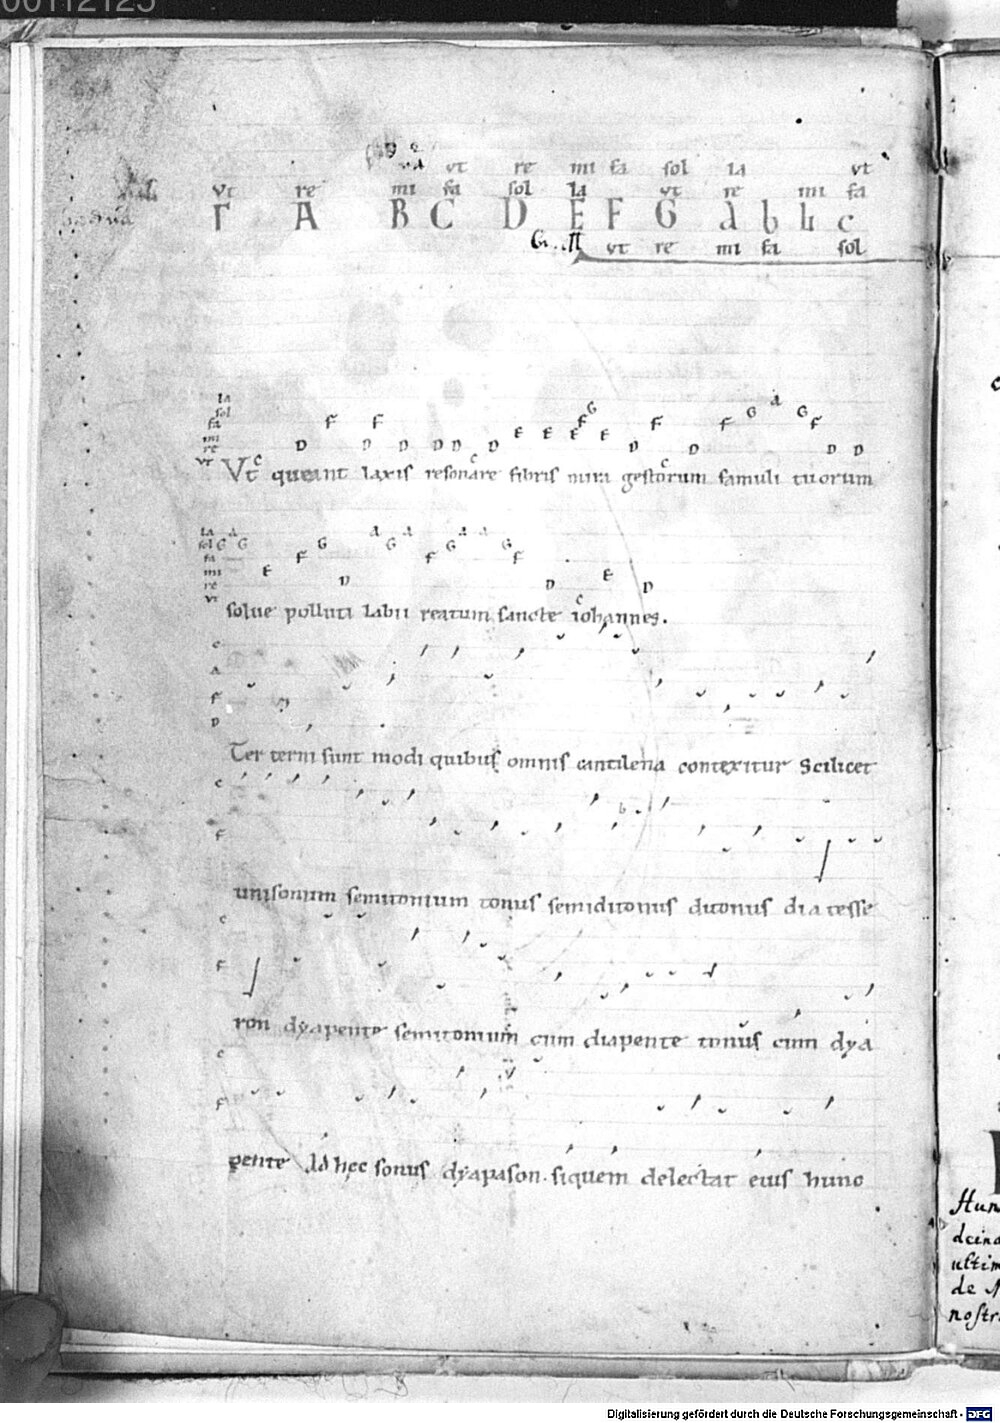 00112125
ut re mi fa sol la ut
ut re mi fa sol la ut re mi fa
Γ A B C D E F G a b h c
ut re mi fa sol
la
sol
fa
mi
re
ut
D F D F D D D D D E E E F G E D F D F G a G F D D
C C C
Ut queant laxis resonare fibris mira gestorum famuli tuorum
la
sol
fa
mi
re
ut
G a G E F G D a G a F G a a G F D C E D
solue polluti labii reatum sancte iohannes.
c
a
f
D
Ter terni sunt modi quibus omnis cantilena contexitur Scilicet
c
f
b
unisonum semitonium tonus semiditonus ditonus diatesse
c
f
ron dyapente semitonium cum diapente tonus cum dya
c
f
pente Ad hęc sonus dyapason. siquem delectat eius hunc
Hun
ultim
de
nostr
Digitalisierung gefördert durch die Deutsche Forschungsgemeinschaft - DFG